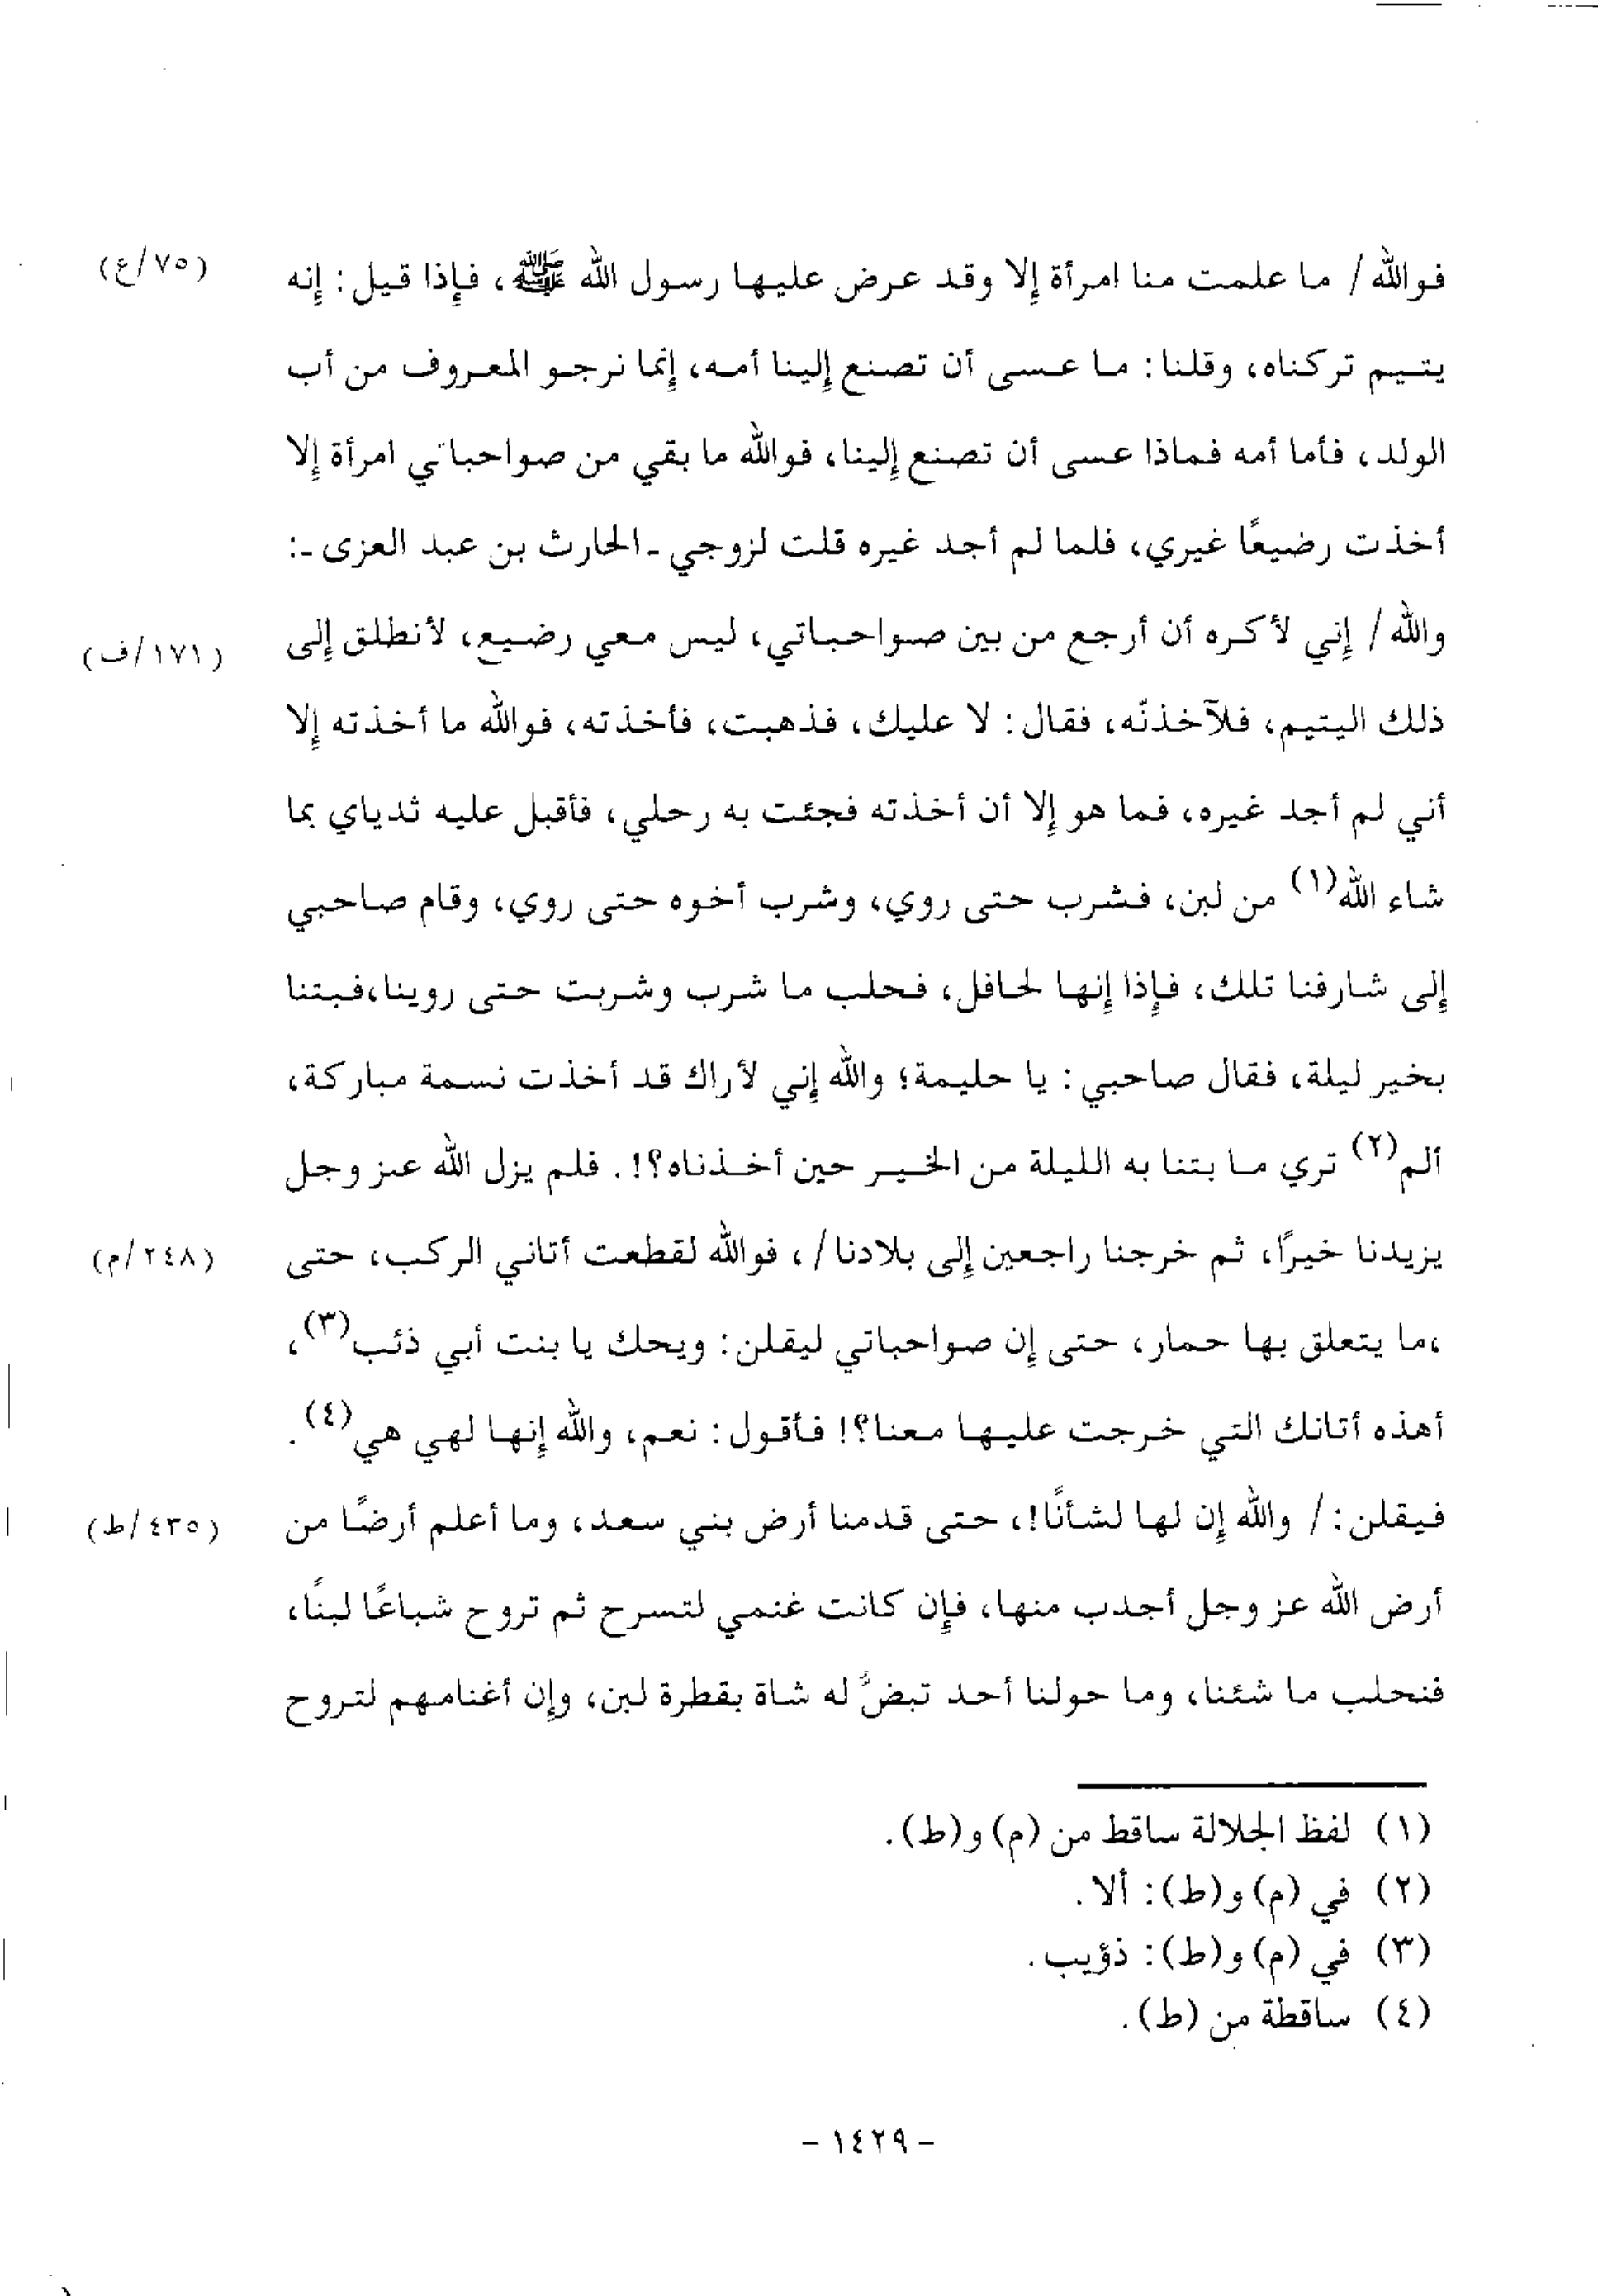 فوالله / ما علمت منا امرأة إلا وقد عرض عليها رسول الله ﷺ، فإذا قيل: إنه (٧٥/ع)
يتيم تركناه، وقلنا: ما عسى أن تصنع إلينا أمه، إنما نرجو المعروف من أب
الولد، فأما أمه فماذا عسى أن تصنع إلينا، فوالله ما بقي من صواحباتي امرأة إلا
أخذت رضيعًا غيري، فلما لم أجد غيره قلت لزوجي ـ الحارث بن عبد العزى ـ:
والله / إني لأكره أن أرجع من بين صواحباتي، ليس معي رضيع، لأنطلق إلى (١٧١/ف)
ذلك اليتيم، فلآخذنّه، فقال: لا عليك، فذهبت، فأخذته، فوالله ما أخذته إلا
أني لم أجد غيره، فما هو إلا أن أخذته فجئت به رحلي، فأقبل عليه ثدياي بما
شاء الله(١) من لبن، فشرب حتى روي، وشرب أخوه حتى روي، وقام صاحبي
إلى شارفنا تلك، فإذا إنها لحافل، فحلب ما شرب وشربت حتى روينا، فبتنا
بخير ليلة، فقال صاحبي: يا حليمة؛ والله إني لأراك قد أخذت نسمة مباركة،
ألم(٢) تري ما بتنا به الليلة من الخير حين أخذناه؟!. فلم يزل الله عز وجل
يزيدنا خيرًا، ثم خرجنا راجعين إلى بلادنا/، فوالله لقطعت أتاني الركب، حتى (٢٤٨/م)
،ما يتعلق بها حمار، حتى إن صواحباتي ليقلن: ويحك يا بنت أبي ذئب(٣)،
أهذه أتانك التي خرجت عليها معنا؟! فأقول: نعم، والله إنها لهي هي(٤).
فيقلن: / والله إن لها لشأنًا!، حتى قدمنا أرض بني سعد، وما أعلم أرضًا من (٤٣٥/ط)
أرض الله عز وجل أجدب منها، فإن كانت غنمي لتسرح ثم تروح شباعًا لبنًا،
فنحلب ما شئنا، وما حولنا أحد تبضُّ له شاة بقطرة لبن، وإن أغنامهم لتروح
(١) لفظ الجلالة ساقط من (م) و(ط).
(٢) في (م) و(ط): ألا.
(٣) في (م) و(ط): ذؤيب.
(٤) ساقطة من (ط).
- ١٤٢٩ -